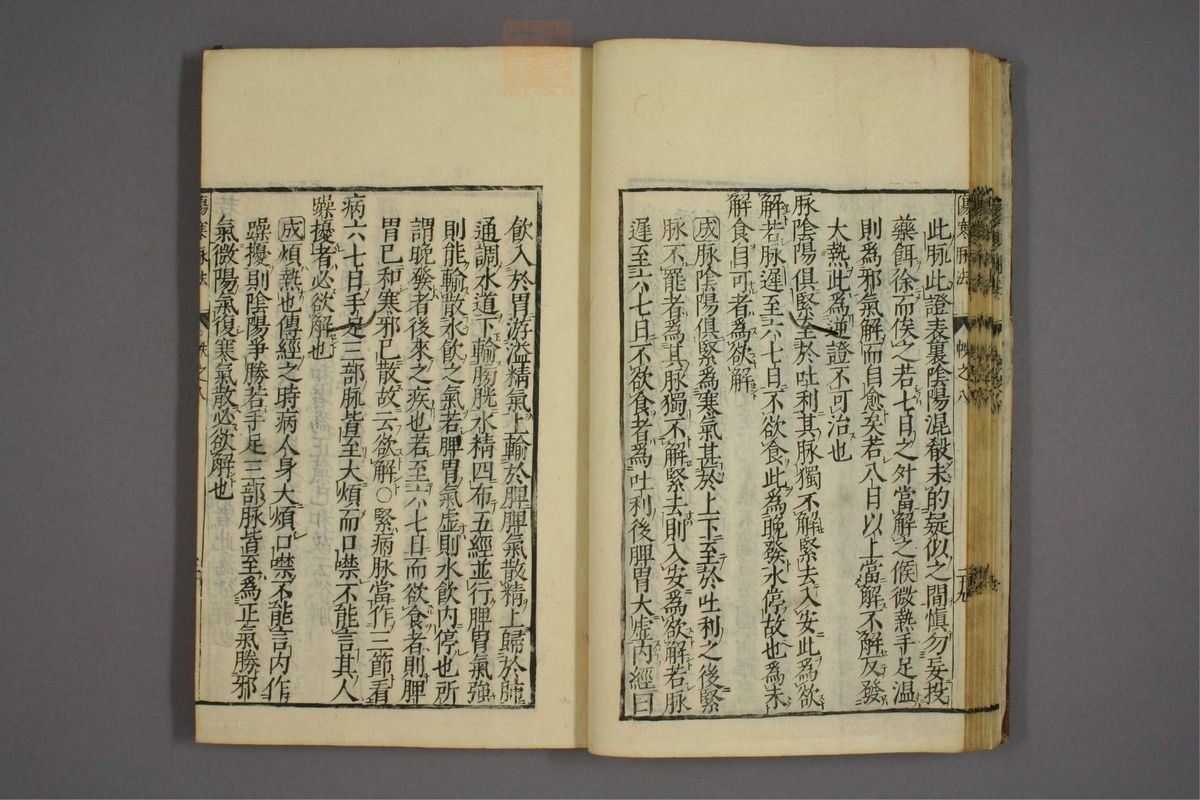 此脉此證表裏陰陽混殽未的疑似之間慎勿妄投
藥餌徐而俟之若七日之外當解之候微熱手足温
則爲邪氣解而自愈矣若八日以上當解不解反發
大熱此爲逆證不可治也
脉陰陽俱緊至於吐利其脉獨不解緊去入安此爲欲
解若脉遲至六七日不欲食此爲晩發水停故也爲未
解食自可者爲欲解
成脉陰陽俱緊爲寒氣甚於上下至於吐利之後緊
脉不罷者爲其脉獨不解緊去則入安爲欲解若脉
遲至六七日不欲食者爲吐利後脾胃大虚内經曰
傷寒脉法
帙之八
二十九
飲入於胃游溢精氣上輸於脾脾氣散精上歸於肺
通調水道下輸膀胱水精四布五經並行脾胃氣強
則能輸散水飲之氣若脾胃氣虚則水飲内停也所
謂晩發者後來之疾也若至六七日而欲食者則脾
胃已和寒邪已散故云欲解○緊病脉當作三節看
病六七日手足三部脉皆至大煩而口噤不能言其人
躁擾者必欲解也
成煩熱也傳經之時病人身大煩口噤不能言内作
躁擾則陰陽爭勝若手足三部脉皆至爲正氣勝邪
氣微陽氣復寒氣散必欲解也
傷寒脉法
帙之八